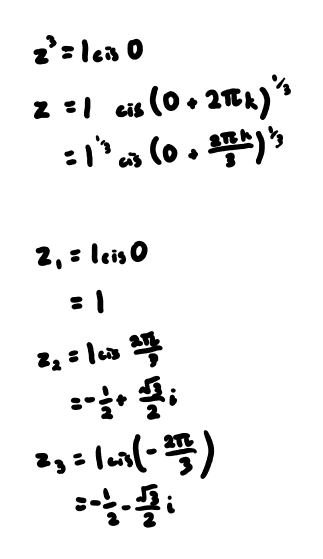 z³ = 1 cis 0
z = 1 cis (0 + 2πk)^1/3
= 1^1/3 cis (0 + 2πk/3)^1/3
z₁ = 1 cis 0
= 1
z₂ = 1 cis 2π/3
= -1/2 + √3/2 i
z₃ = 1 cis (-2π/3)
= -1/2 - √3/2 i